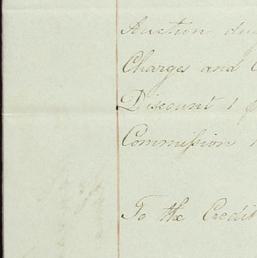 Auction du
Charges and C
Discount 1
Commiſsion 1
To the Credit